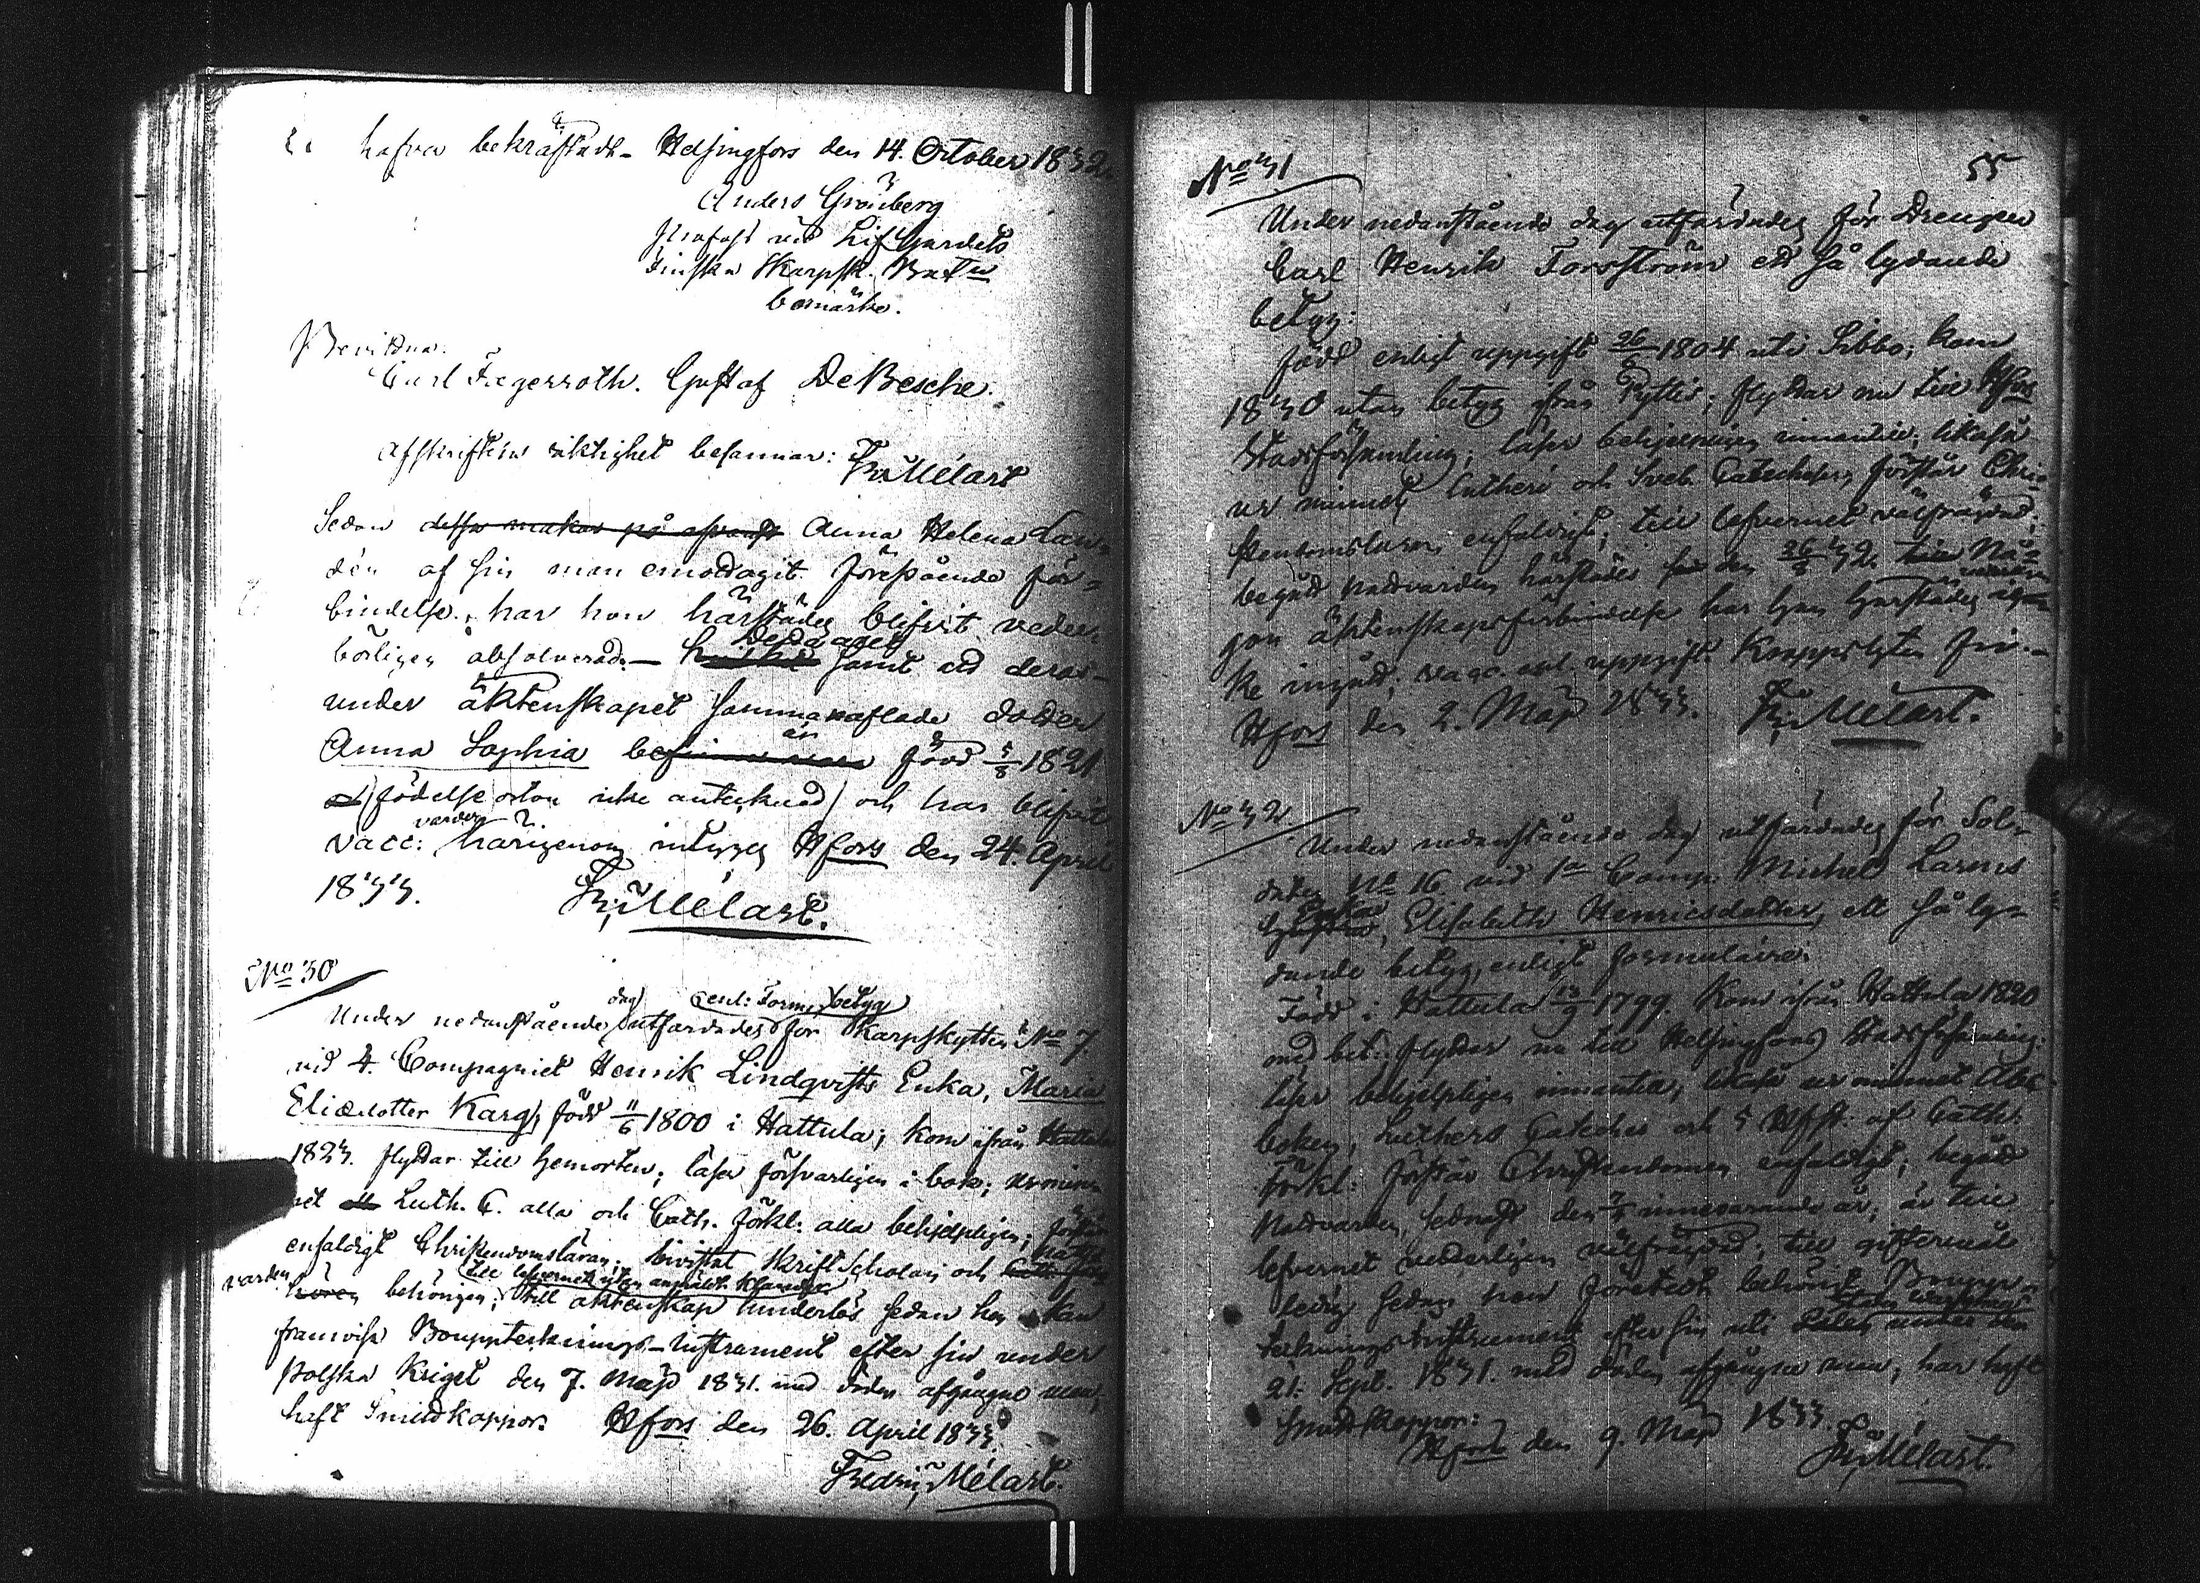 hafva bekräftadt. Helsingfors den 14. October 1832.
Anders Grönberg
Profoss vid Lif Gardets
Finska Skarpsk. Bat:n
bomärke.
Bevittna:
Carl Fegerroth. Gustaf DeBesche.
Afskriftens riktighet besannar:
Fr: Mélart
Sedan dessa makar på Anna Helena Lan-
dén af sin man emottagit förestående för-
bindelse, har hon härstädes blifvit veder-
Desd
börligen absolverad. samt att deras
under äktenskapet sammanaflade dotter
är
Anna Sophia född 5/8 1821
(födelse orten icke antecknad) och har blifvit
varder
vacc: härigenom intygas Hfors den 24. April
1833. Fr: Mélart.
No 30
dag enl: Form. betyg
Under nedanstående utfärdades för Skarpskytten No 7.
vid 4. Compagniet Henrik Lindqvists Enka, Maria
Eliædotter Karg, född 11/6 1800 i Hattula; kom ifrån Hattula
1823. flyttar till hemorten; läser försvarligen i bok; ur min-
net Luth. C. alla och Cath. förkl. alla behjelpligen; förstår
enfaldigt Christendomsläran; bivistat Skrift Scholan och
till lefvernet utan anmärkt klander
varden behörigen; till äktenskap hinderlös sedan hon kan
framvisa Bouppteknings-Instrument efter sin under
Polska Kriget den 7. Maji 1831. med döden afgångne man;
haft Smittkoppor. Hfors den 26. April 1833.
Fredric Mélart.
55
No 31
Under nedanstående dag utfärdades för Drengen
Carl Henrik Forsström ett så lydande
betyg:
född enligt uppgift 26/6 1804 uti Sibbo; kom
1830 utan betyg från Pyttis; flyttar nu till Hfors
Stadsförsamling; läser behjelpligen innantill; likaså
ur minnet Lutheri och Sveb. Cateches; förstår Chri-
stendomsläran enfaldigt; till lefvernet välfräjdad;
begått nattvarden härstädes den 26/3 32. Nå-
gon äktenskapsförbindelse har han härstädes
ke ingått; vacc. enl. uppgift. Krappslyten fri.
Hfors den 2. Maji 1833. Fr: Mélart.
No 32
Under nedanstående dag utfärdades för Sol-
daten No 16 vid 1a Comp. Michel Larms
Enka
Hustru, Elisabeth Henricsdotter, ett så ly-
dande betyg enligt formulaire:
Född i Hattula 13/9 1799. Kom ifrån Hattula 1820
med bet.; flyttar nu till Helsingfors Stadsförsamling:
läser behjelpligen innantill; likaså ur minnet Abc
boken, Luthers Cateches och 5 Hfst. af Cath.
Förkl: förstår Christendomen enfaldigt; begått
Nattvarden sednast den innevarande år, är till
lefvernet vederligen välfräjdad; till giftermål
ledig sedan hon företedt behörigt Boupp-
tecknings-Instrument efter sin uti
21. Sept. 1831. med döden afgångne man; har haft
Smittkoppor:
Hfors den 9. Maji 1833.
Fr: Mélart.